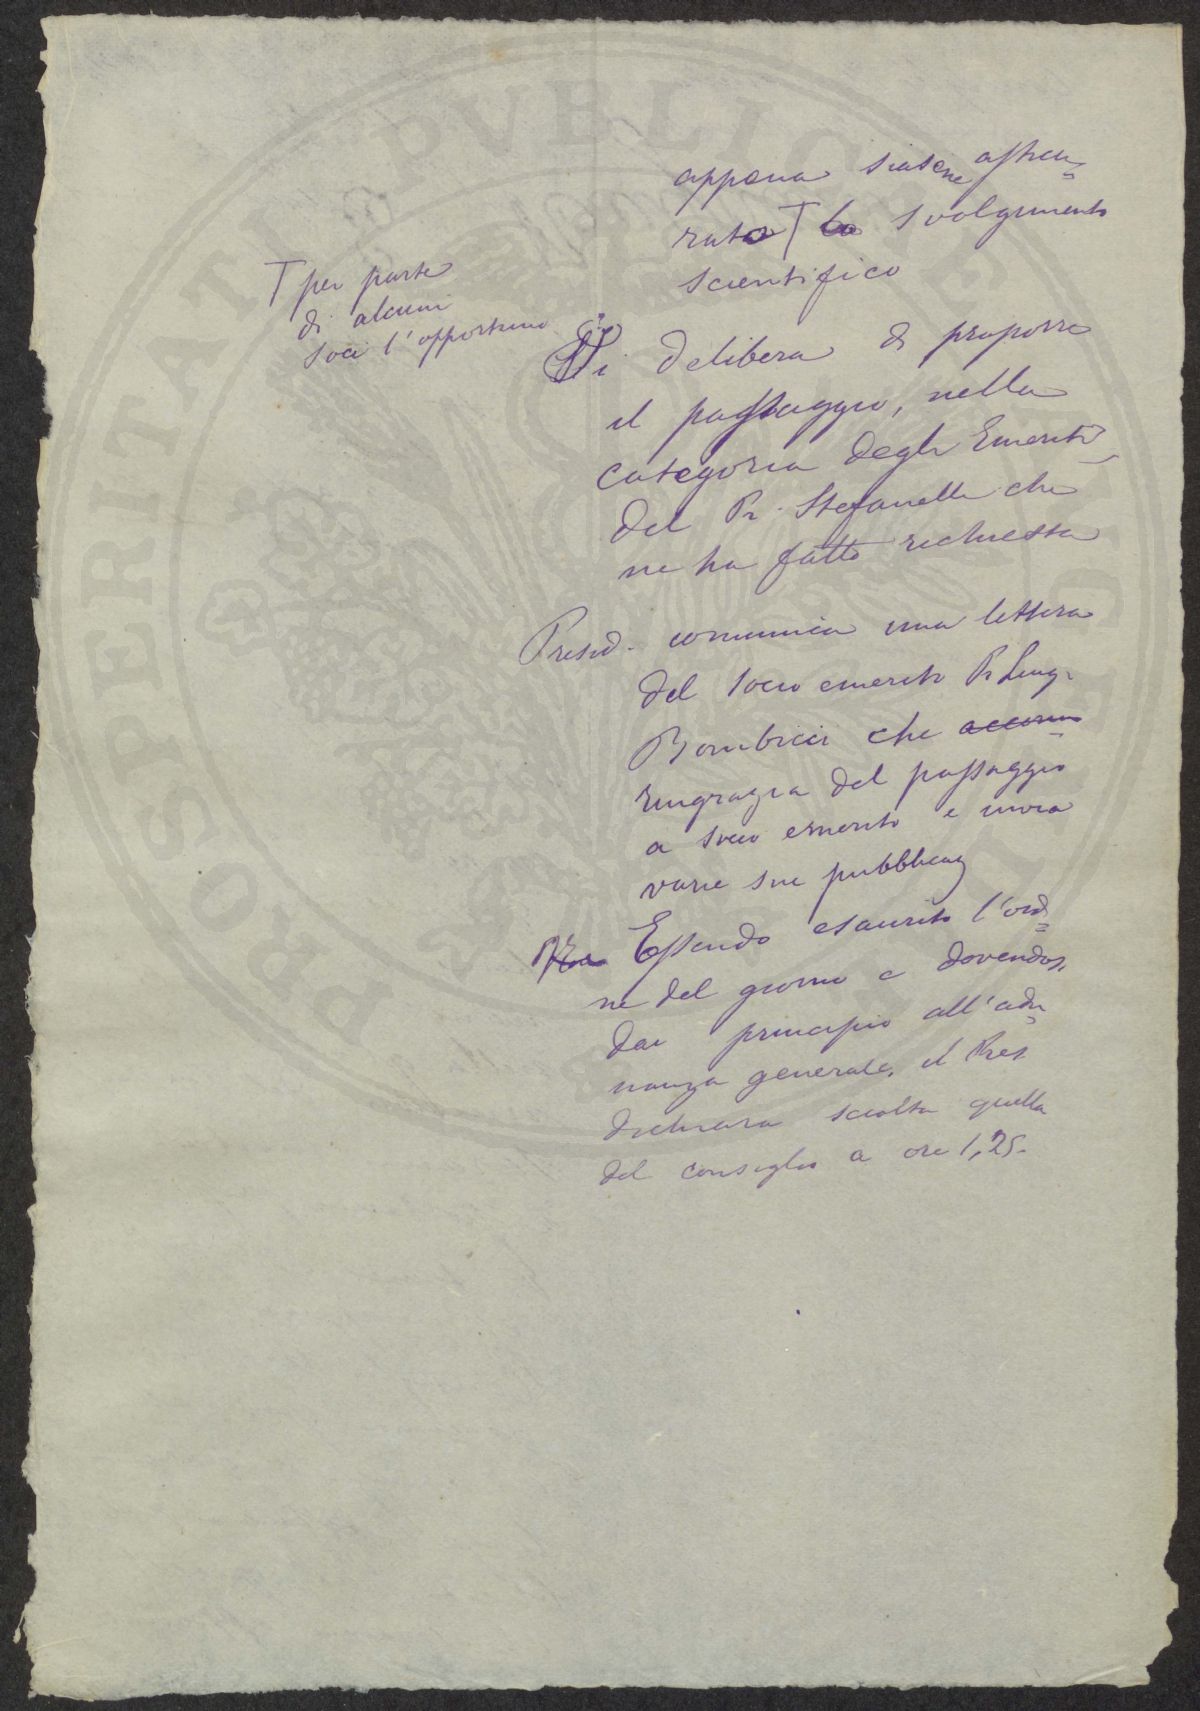 appena siasene assicu=
rato T lo svolgimento
scientifico
T per parte
di alcuni
soci l'opportuno
Si delibera di proporre
il passaggio, nella
categoria degli Emeriti
del Pr. Stefanelli che
ne ha fatto richiesta
Presid. comunica una lettera
del socio emerito Pr Luigi
Bombicci che accom=
ringrazia del passaggio
a socio emerito e invia
varie sue pubblicaz
Essendo esaurito l'ordi=
ne del giorno e dovendosi
dar principio all'adu=
nanza generale, il Pres
dichiara sciolta quella
del consiglio a ore 1,25.